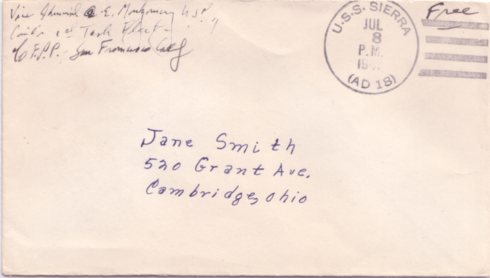 Vice Admiral A. E. Montgomery USN
Com 1st Task Fleet
c/o F.P.O. San Francisco Calif
U.S.S. SIERRA
JUL
8
P.M.
(AD 18)
Free
Jane Smith
520 Grant Ave.
Cambridge, Ohio